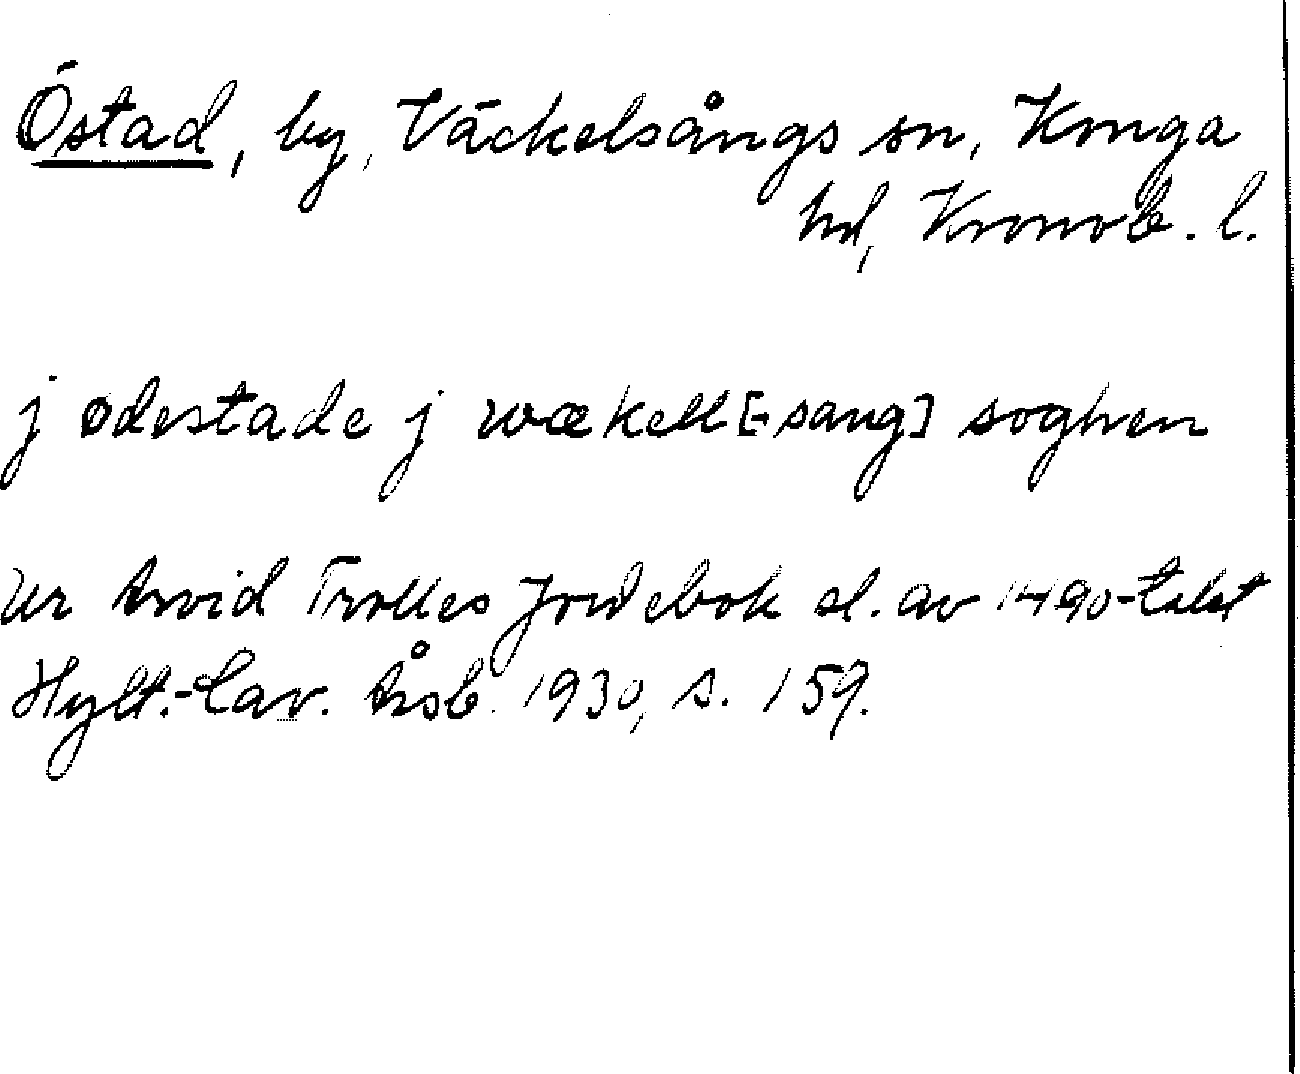 Östad, by, Väckelsångs sn, Konga
hd, Kronob. l.
j ødestade j wækell[-sang] soghen
Ur Arvid Trolles Jordebok sl. av 1490-talet
Hylt.-Cav. Årsb. 1930, s. 159.